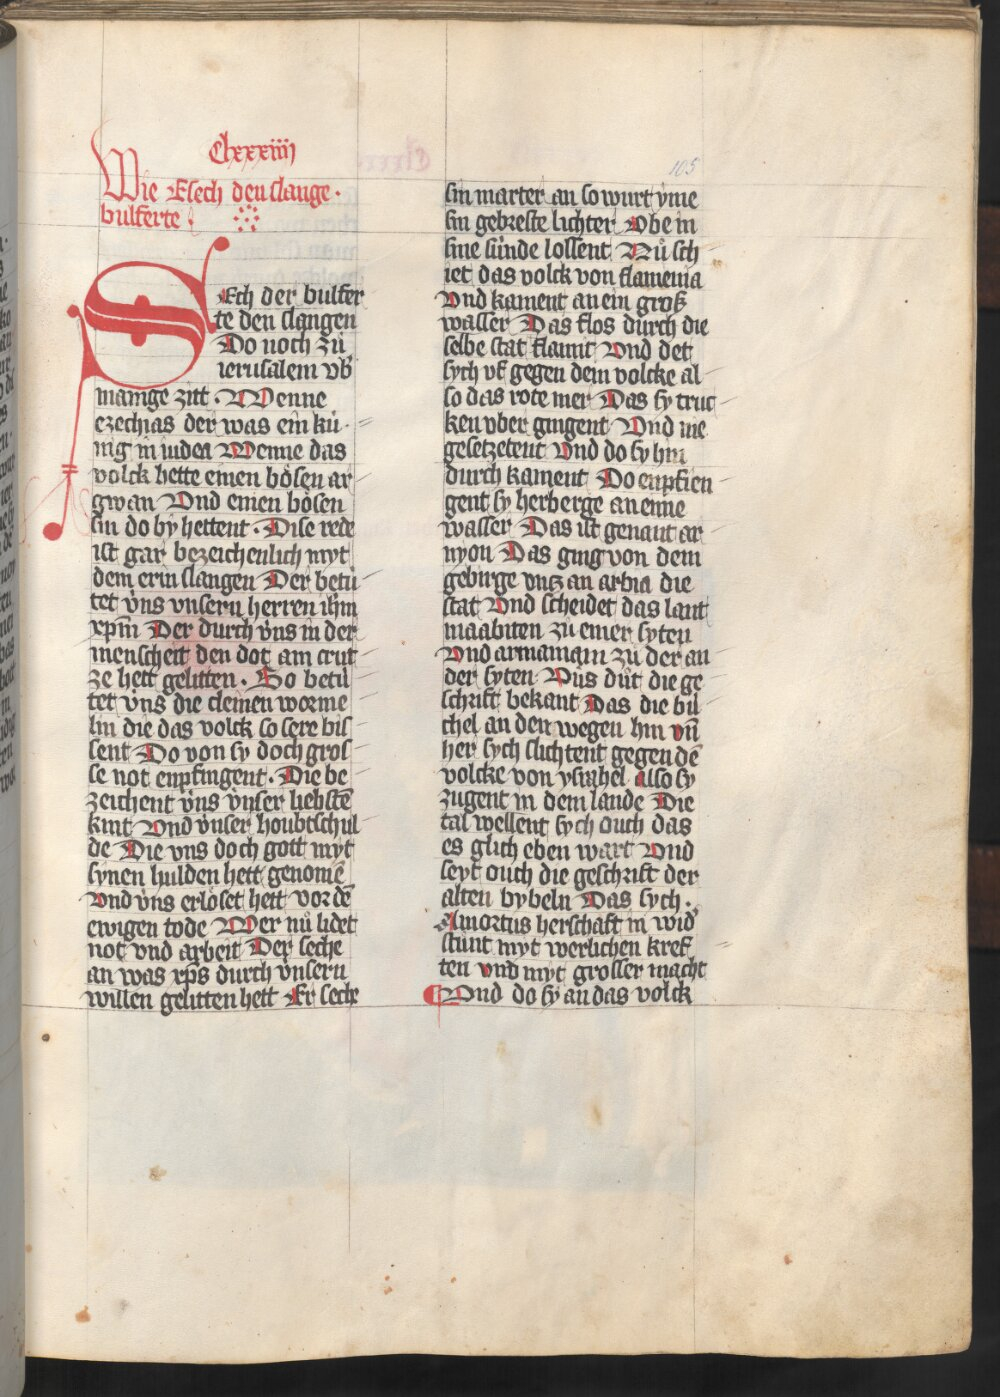 Clxxxiiij
105
Wie Esech den slange·
bulferte
SEch der bulfer
te den slangen
Do noch zů
ierusalem vb᷒
manige zitt · Wenne
ezechias der was ein kü
nig in iudea Wenne das
volck hette einen bösen ar
gwan Vnd einen bösen
sin do by hettent · Dise rede
ist gar bezeichenlich myt
dem erin slangen Der betü
tet vns vnsern herren ihm
xpm̄ Der durch vns in der
menscheit den dot am crut
ze hett gelitten · So betü
tet vns die cleinen worme
lin die das volck so sere bis
sent Do von sy doch gros
se not enpfingent · Die be
zeichent vns vnser liebstē
kint Vnd vnser houbtschul
de Die vns doch gott myt
synen hulden hett genomē
Vnd vns erlöset hett vor dē
ewigen tode Wer nů lidet
not vnd arbeit Der seche
an was xp̄s durch vnsern
willen gelitten hett Er seche
sin marter an so wurt yme
sin gebreste lichter Obe in
sine sünde lossent Nů sch
iet das volck von flamenia
Vnd kament an ein groß
wasser Das flos durch die
selbe stat flamit Vnd det
sych vf gegen dem volcke al
so das rote mer Das sy truc
ken vber gingent Vnd nie
gesetzetent Vnd do sy hin
durch kament Do enpfien
gent sy herberge an enne
wasser Das ist genant ar
nyon Das ging von dem
gebirge vntz an arbia die
stat Vnd scheidet das lant
maabiten zů einer syten
Vnd armamam zů der an
der syten Vns düt die ge
schrift bekant Das die bü
chel an den wegen hin vn̄
her sych slichtent gegen dē
volcke von ysrahel Also sy
zugent in dem lande Die
tal wellent sych ouch das
es glich eben wart Vnd
seyt ouch die geschrift der
alten bybeln Das sych ·
Amortus herschaft in wid᷒
stünt myt werlichen kref
ten vnd myt grosser macht
Vnd do sy an das volck